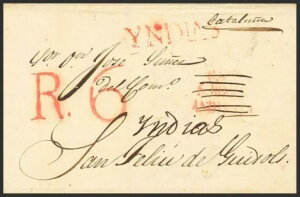 YNDIAS
Cataluña
Dn. José
del Com.o
R. 6
Yndias
San Feliu de Guixols.